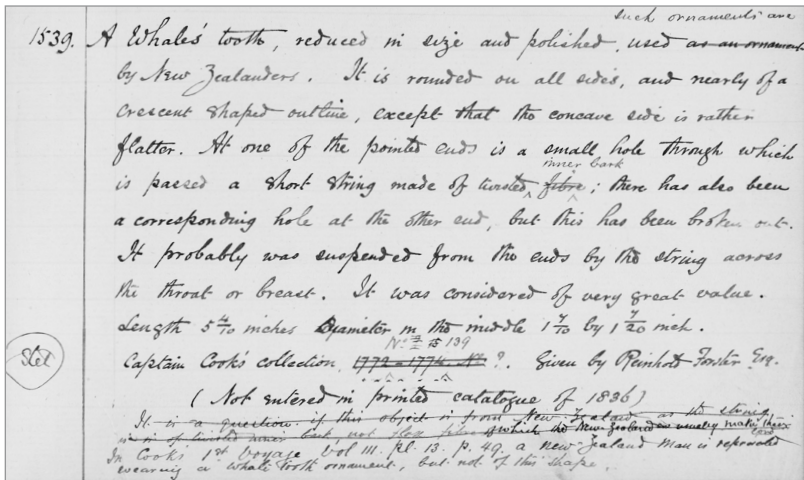 such ornaments are
1539. A Whale's tooth, reduced in size and polished, used as an ornament
by New Zealanders. It is rounded on all sides, and nearly of a
crescent shaped outline, except that the concave side is rather
flatter. At one of the pointed ends is a small hole through which
inner bark
is passed a short string made of twisted fibre; there has also been
a corresponding hole at the other end, but this has been broken out.
It probably was suspended from the ends by the string across
the throat or breast. It was considered of very great value.
Length 5 4/10 inches Diameter in the middle 1 7/10 by 1 7/20 inch.
139
Captain Cook's collection, 1772-1774 No ?. Given by Reinhold Forster Esq.
(Not entered in printed catalogue of 1836)
It is a question if this object is from New Zealand, as the string
is of twisted inner bark, not flax which the New Zealanders usually make their
cord
In Cook's 1st Voyage Vol III. pl. 13. p. 49. a New Zealand man is represented
wearing a whale tooth ornament, but not of this shape.